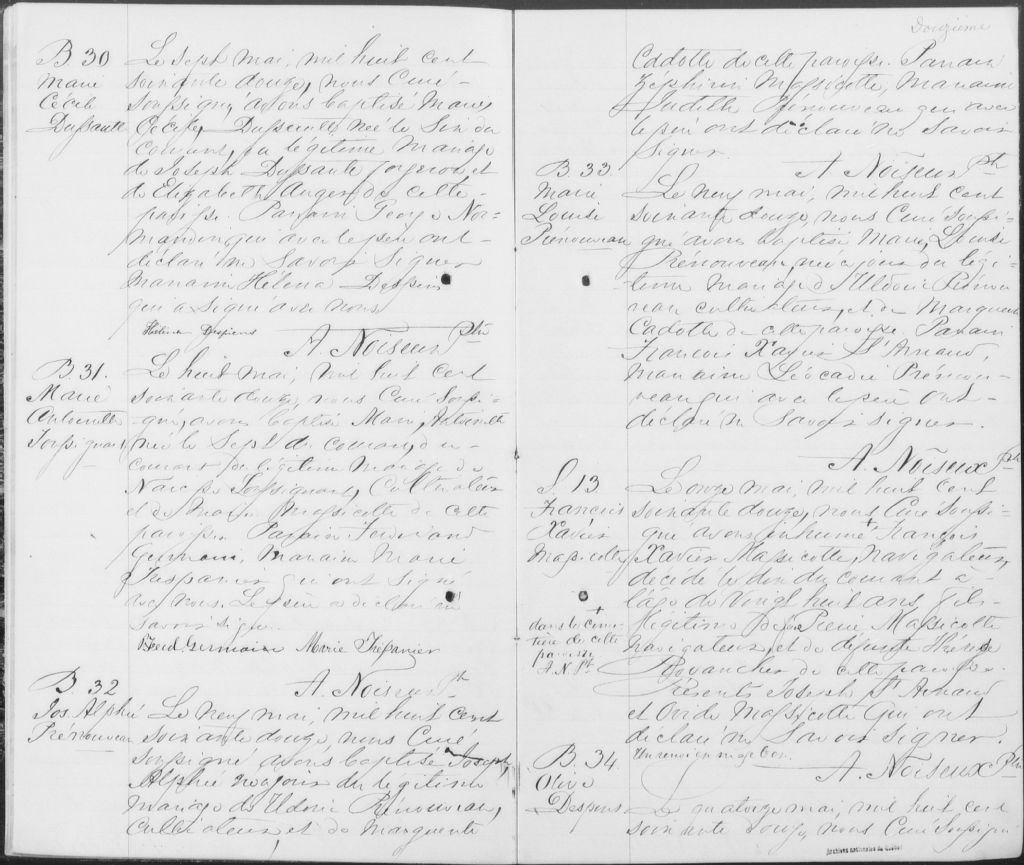 B 30
Marie
Cécile
Dussault
Le Sept mai, mil huit cent
soixante douze, nous Curé
soussigné, avons baptisé Marie
Cécile, née le Six du
courant, du légitime mariage
de Joseph Dussault forgeron et
de Elizabeth Auger de cette
paroisse. Parrain George Nor-
mandin qui avec le père ont
déclaré ne savoir signer
Marraine Héléna Despins
qui a signé avec nous
Héléna Despins
A. Noiseux Ptre
B 31.
Marie
Antoinette
Toussignant
Le huit mai, mil huit cent
soixante douze, nous Curé soussi-
gné, avons baptisé Marie, Antoinette
née le Sept du courant, du
légitime mariage de
Narcisse Toussignant, Cultivateur
et de Marie Massicotte de cette
paroisse. Parrain Ferdinand
Germain, Marraine Marie
Trépanier qui ont signé
avec nous. Le père a déclaré ne
savoir signer.
Ferd. Germain Marie Trépanier
A. Noiseux Pt
B. 32
Jos. Alphé
Prénouveau
Le neuf mai, mil huit cent
soixante douze, nous Curé
soussigné avons baptisé Joseph,
Alphé né ce jour du légitime
mariage de Uldoric Prénouveau,
cultivateur et de Marguerite
Douzième
Cadotte de cette paroisse. Parrain
Zéphirin Massicotte, Marraine
Judith Prénouveau qui avec
le père ont déclaré ne savoir
signer.
A Noiseux Pth
B. 33.
Marie
Louise
Prénouveau
Le neuf mai, mil huit cent
soixante douze, nous Curé soussi-
gné avons baptisé Marie, Louise
Prénouveau, née ce jour du légi-
time mariage d'Uldoric Prénou-
veau cultivateur, et de Marguerite
Cadotte de cette paroisse. Parrain
François Xavier St Arnaud,
marraine Léocadie Prénou-
veau qui avec le père ont
déclaré ne savoir signer.
A. Noiseux Pth
S 13
François
Xavier
Massicotte
Le onze mai, mil huit cent
soixante douze, nous Curé soussi-
gné avons inhumé + François
Xavier Massicotte, navigateur,
décédé le dix du courant à
l'âge de vingt huit ans, fils
légitime de Pierre Massicotte
navigateur et de défunte
de cette paroisse.
Présents Joseph St Arnaud
et Ovide Massicotte qui ont
déclaré ne savoir signer.
Un renvoi en marge bon.
+
dans le cime-
tière de cette
paroisse
A. N. Pt
A. Noiseux Ptre
B. 34.
Olive
Despins
Le quatorze mai, mil huit cent
soixante douze, nous Curé soussigné
Archives nationales du Québec